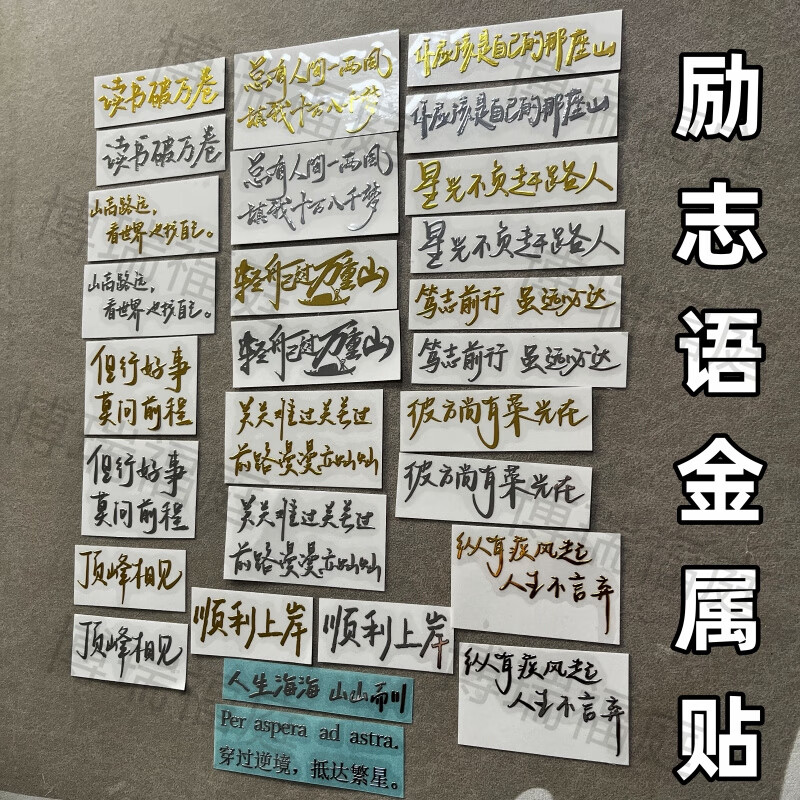 读书破万卷
读书破万卷
山高路远，
看世界也找自己。
山高路远，
看世界也找自己。
但行好事
莫问前程
但行好事
莫问前程
顶峰相见
顶峰相见
总有人间一两风
填我十万八千梦
总有人间一两风
填我十万八千梦
轻舟已过万重山
轻舟已过万重山
关关难过关关过
前路漫漫亦灿灿
关关难过关关过
前路漫漫亦灿灿
顺利上岸
顺利上岸
人生海海 山山而川
Per aspera ad astra.
穿过逆境，抵达繁星。
你应该是自己的那座山
你应该是自己的那座山
星光不负赶路人
星光不负赶路人
笃志前行 虽远必达
笃志前行 虽远必达
彼方尚有荣光在
彼方尚有荣光在
纵有疾风起
人生不言弃
纵有疾风起
人生不言弃
励志语金属贴